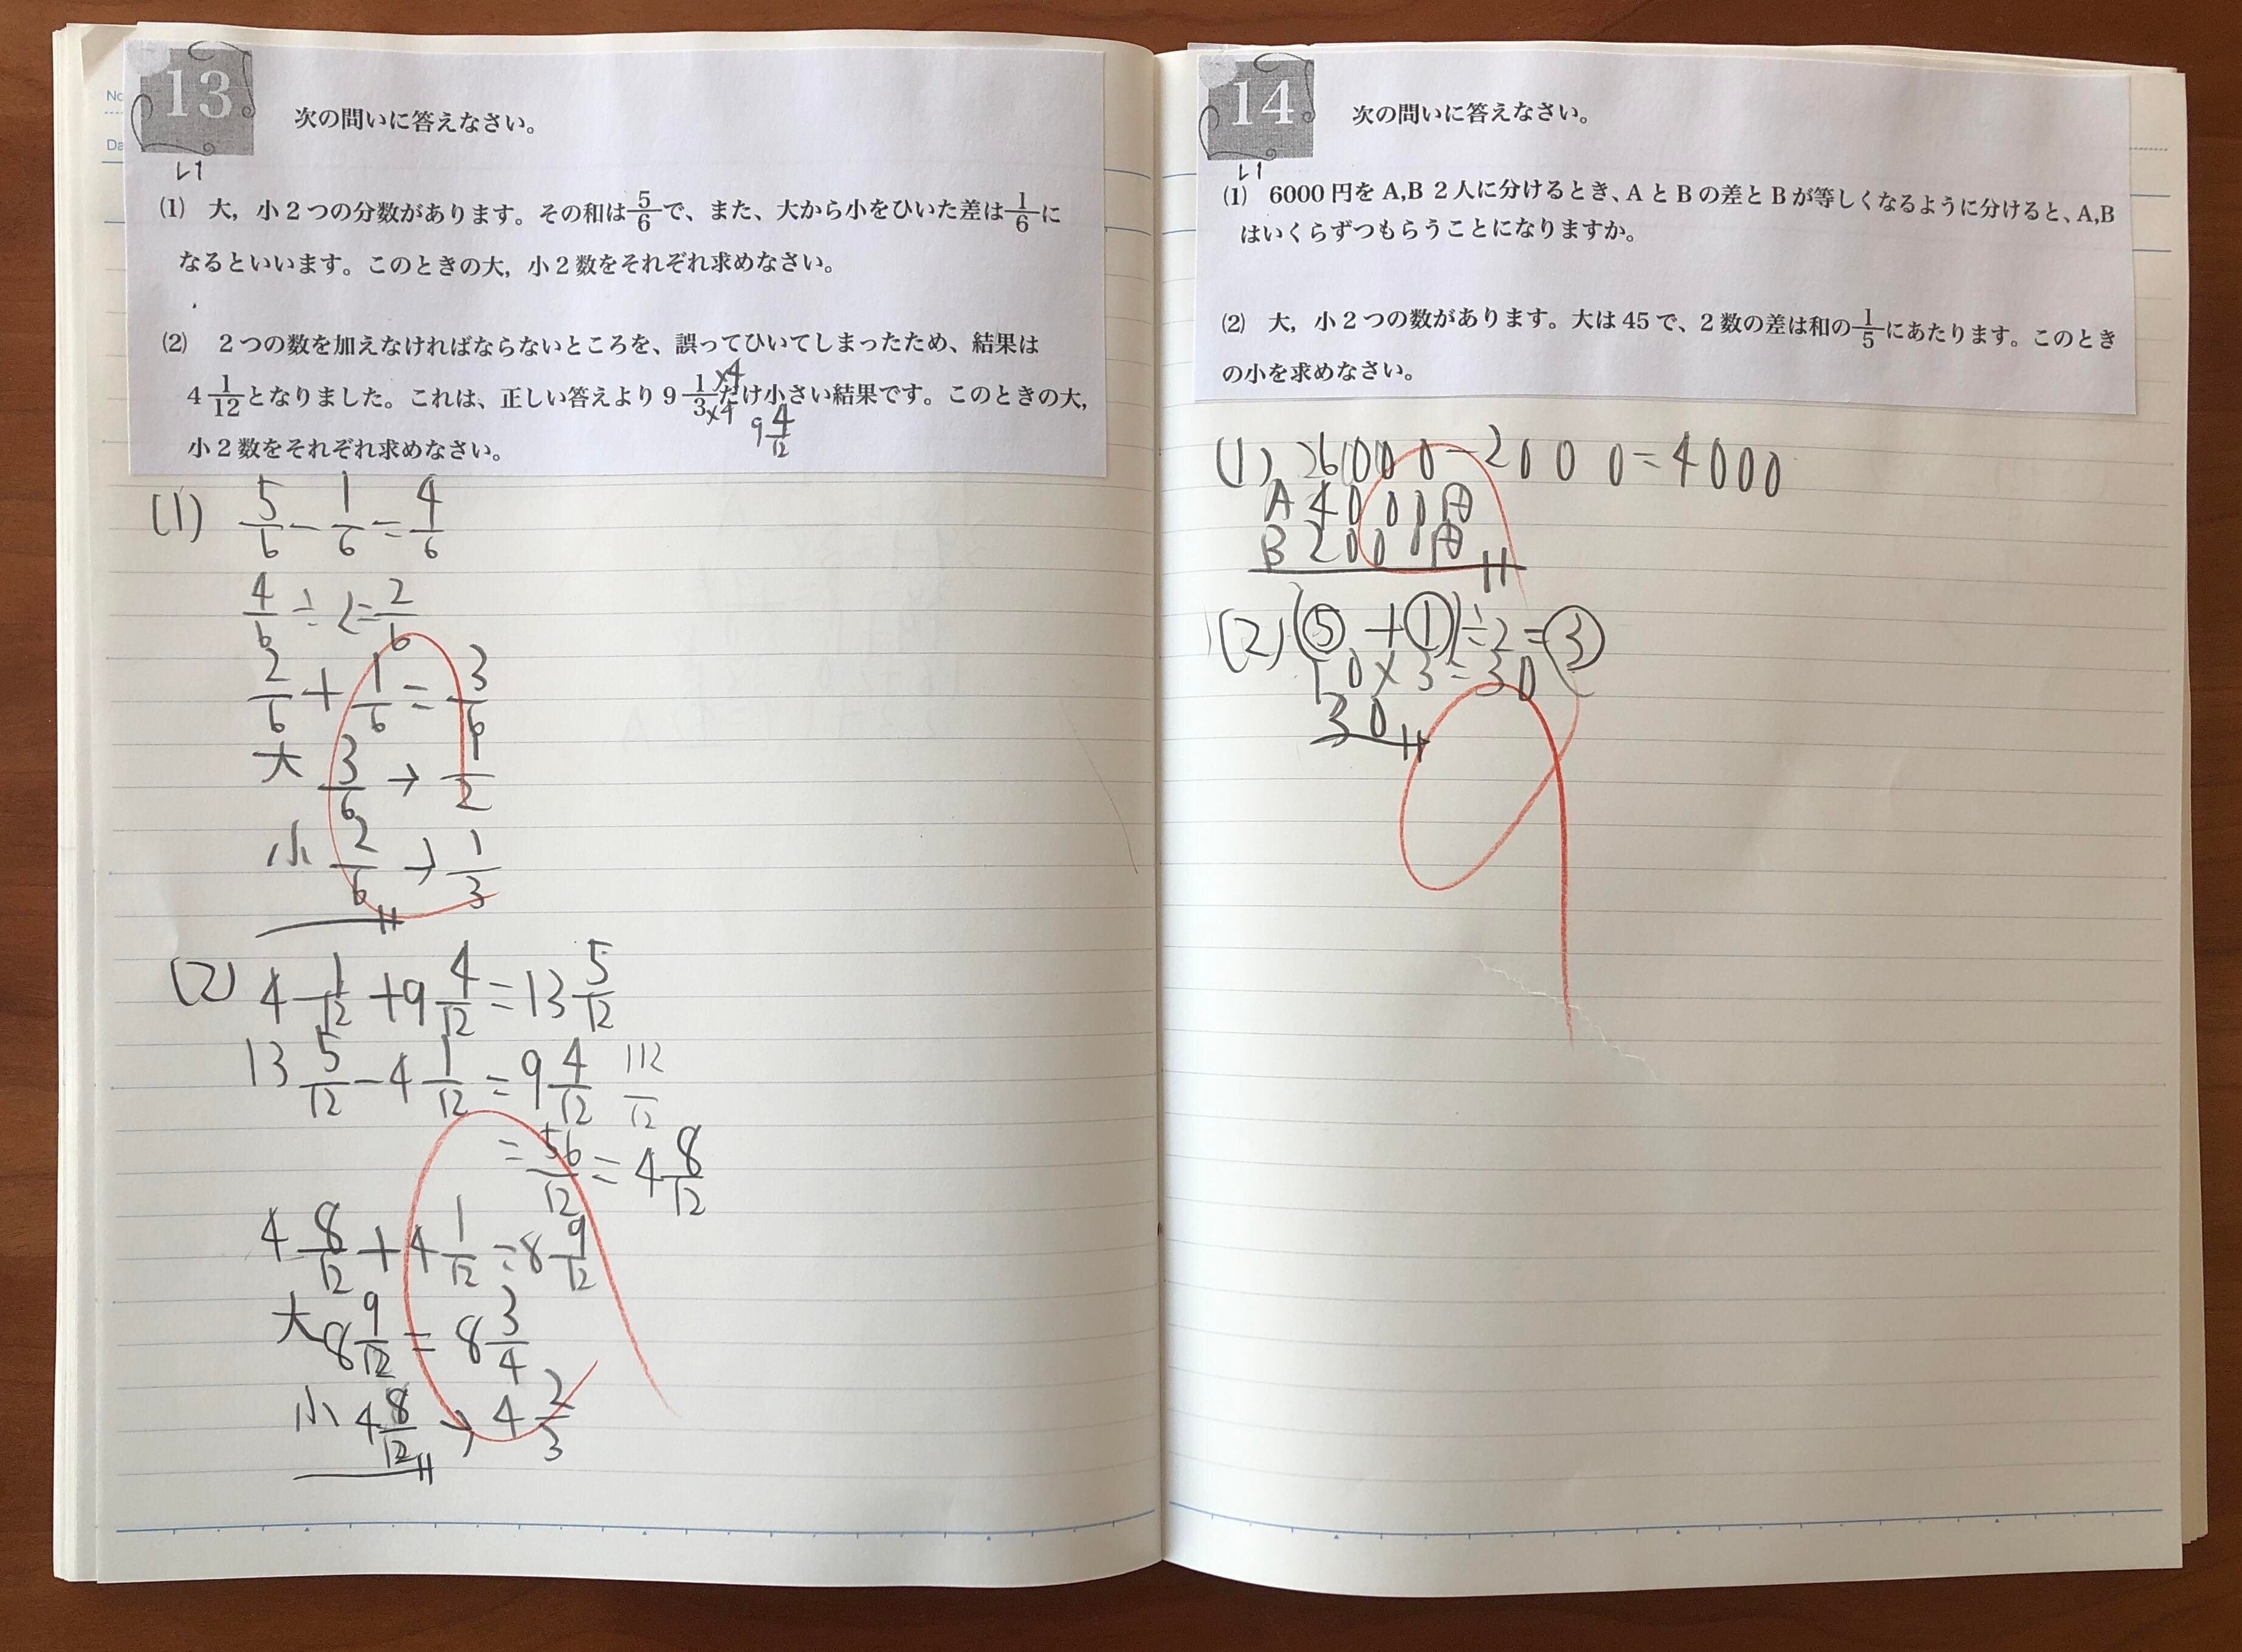 13
次の問いに答えなさい。
L1
(1) 大, 小2つの分数があります。その和は5/6で、また、大から小をひいた差は1/6に
なるといいます。このときの大, 小2数をそれぞれ求めなさい。
(2) 2つの数を加えなければならないところを、誤ってひいてしまったため、結果は
4 1/12となりました。これは、正しい答えより9 1/3だけ小さい結果です。このときの大,
×4
×4
9 4/12
小2数をそれぞれ求めなさい。
(1) 5/6 - 1/6 = 4/6
4/6 ÷ 2 = 2/6
2/6 + 1/6 = 3/6
大 3/6 → 1/2
小 2/6 → 1/3
(2) 4 1/12 + 9 4/12 = 13 5/12
13 5/12 - 4 1/12 = 9 4/12 112/12
= 56/12 = 4 8/12
4 8/12 + 4 1/12 = 8 9/12
大 8 9/12 = 8 3/4
小 4 8/12 → 4 2/3
14
次の問いに答えなさい。
L1
(1) 6000円をA,B 2人に分けるとき、AとBの差とBが等しくなるように分けると、A,B
はいくらずつもらうことになりますか。
(2) 大, 小2つの数があります。大は45で、2数の差は和の1/5にあたります。このとき
の小を求めなさい。
(1) 6000-2000=4000
A 4000円
B 2000円
(2) (⑤+①)÷2=③
10×3=30
30